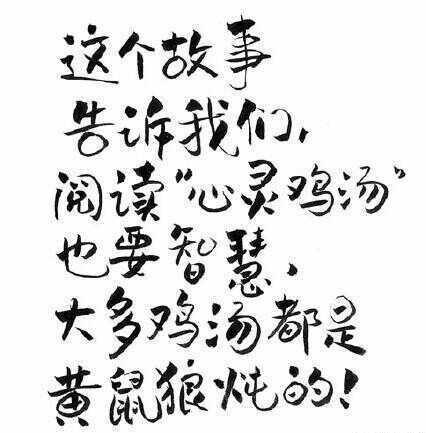 这个故事
告诉我们,
阅读“心灵鸡汤”
也要智慧,
大多鸡汤都是
黄鼠狼炖的!